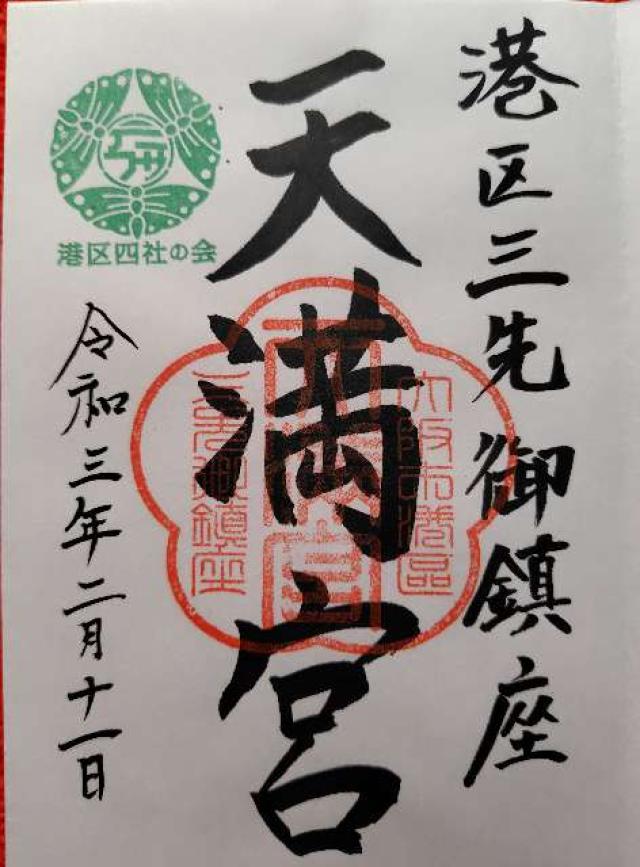 港区三先御鎮座
天満宮
大阪市港區
天満宮
三先御鎮座
港区四社の会
令和三年二月十一日